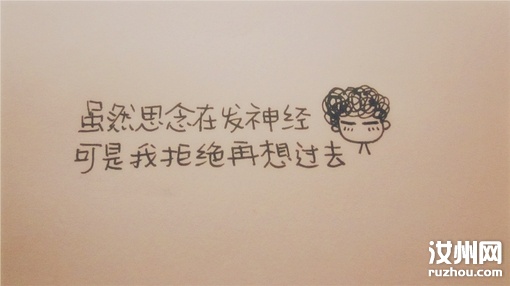 虽然思念在发神经
可是我拒绝再想过去
汝州网
ruzhou.com